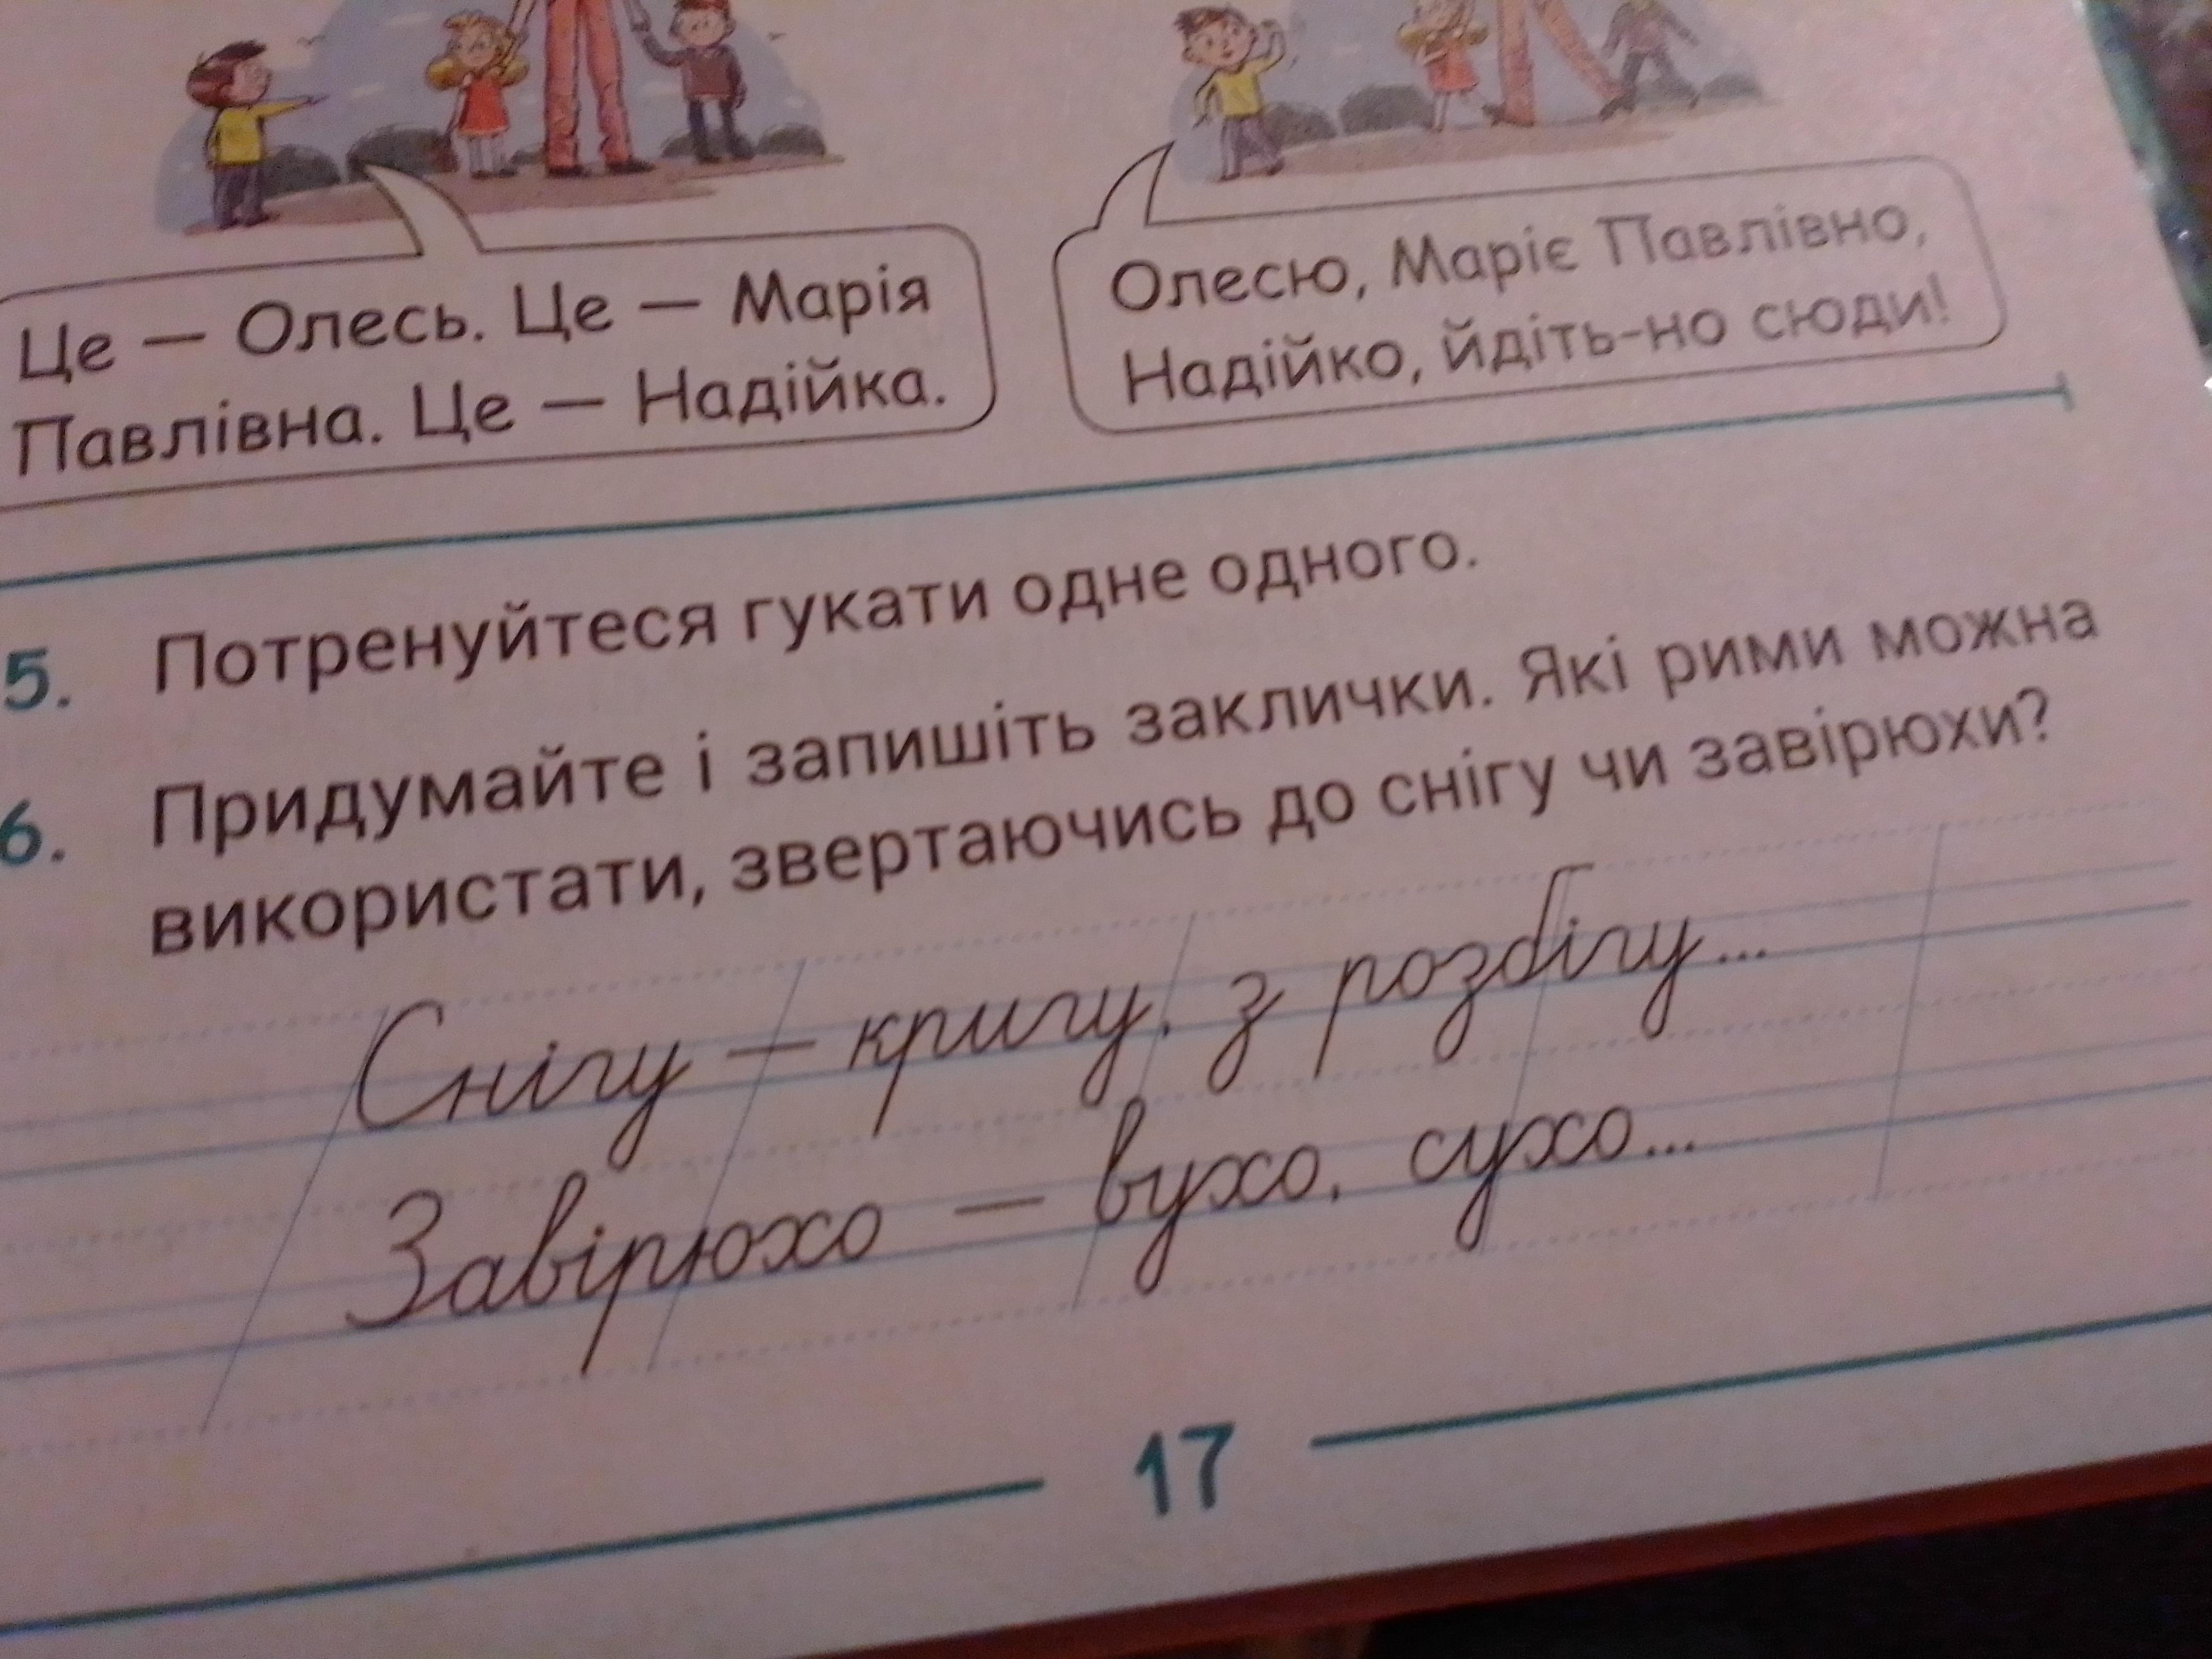 Це — Олесь. Це — Марія
Павлівна. Це — Надійка.
Олесю, Маріє Павлівно,
Надійко, йдіть-но сюди!
5. Потренуйтеся гукати одне одного.
6. Придумайте і запишіть заклички. Які рими можна
використати, звертаючись до снігу чи завірюхи?
Снігу — кригу, з розбігу...
Завірюхо — вухо, сухо...
17